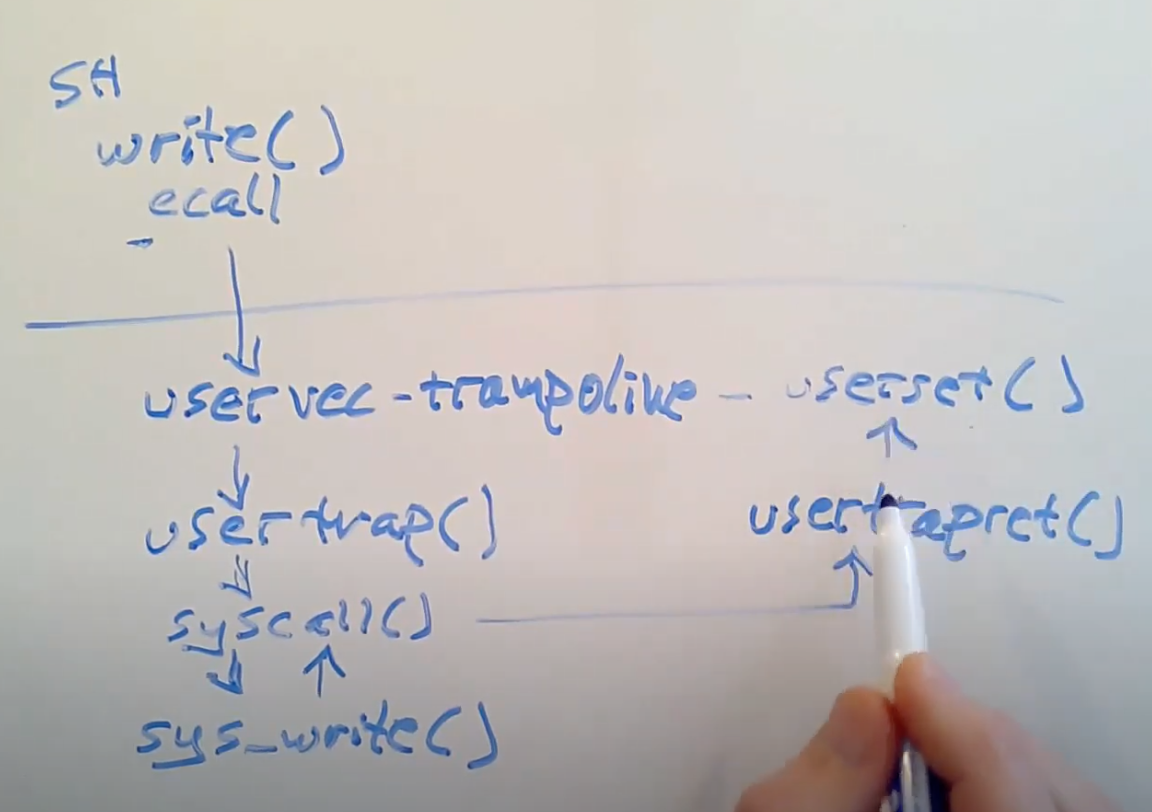 SH
write()
ecall
uservec - trampoline - userret()
usertrap() usertrapret()
syscall()
sys_write()